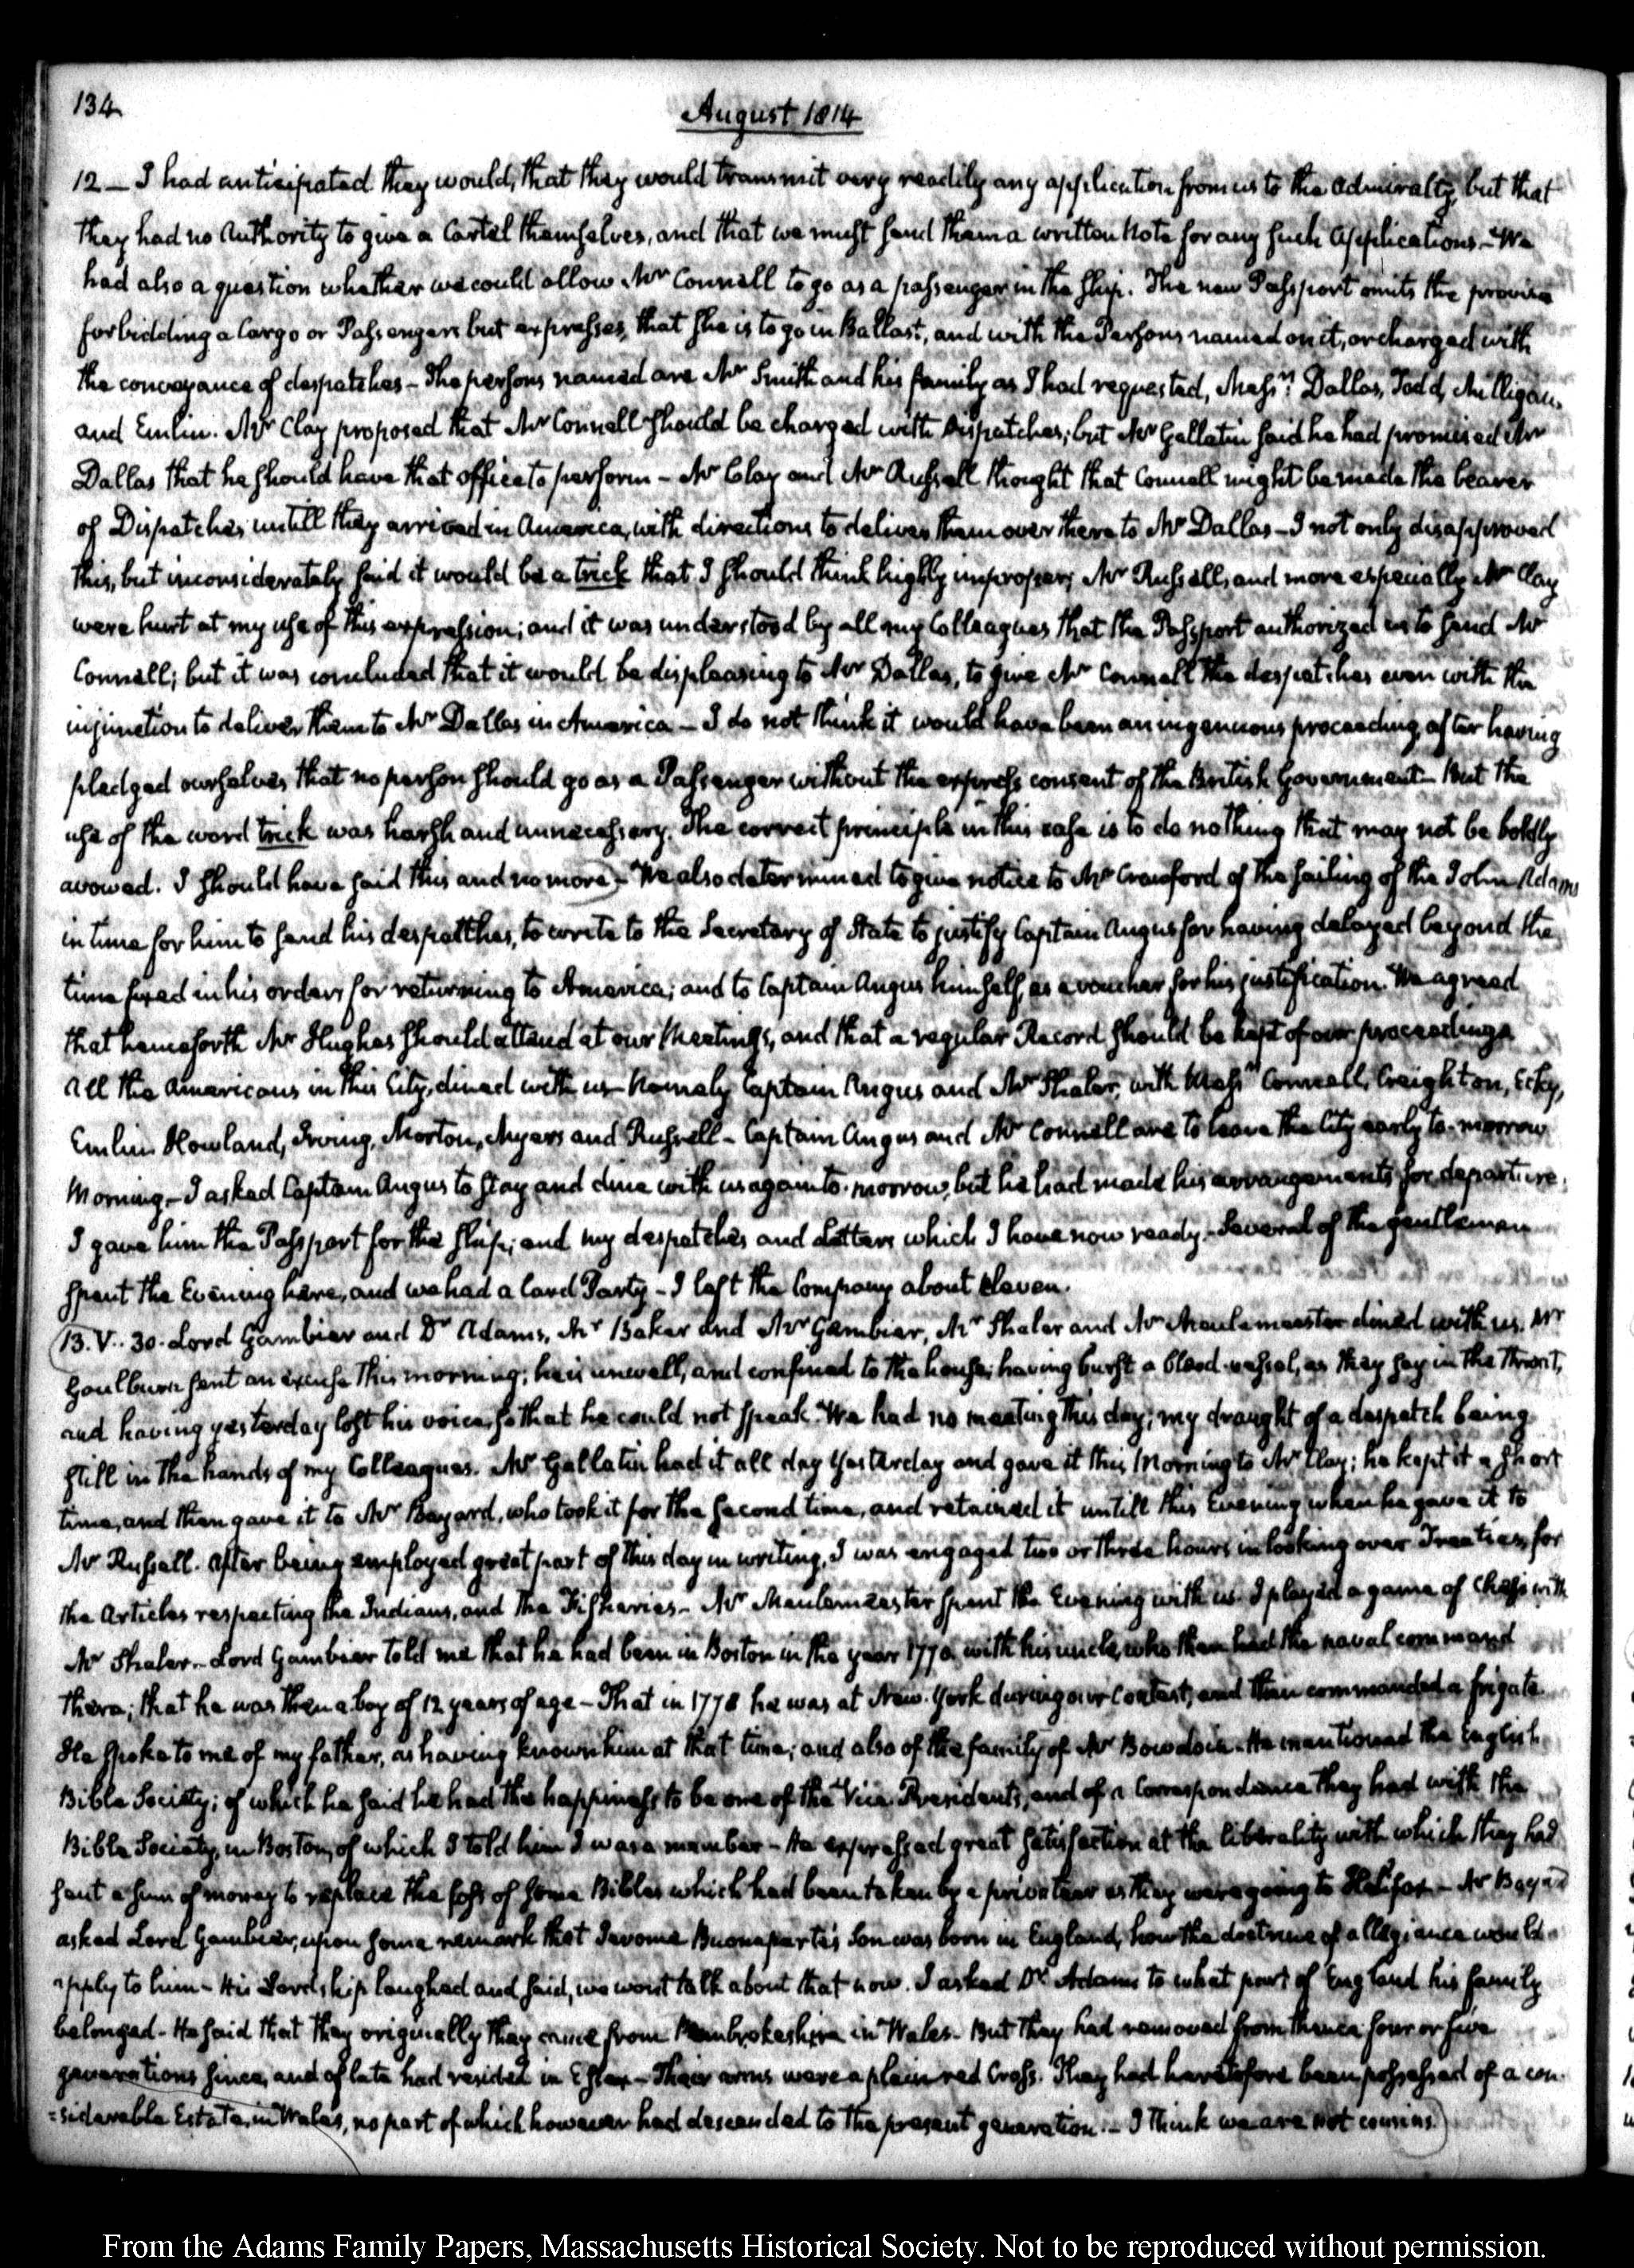 134
August 1814
12 — I had anticipated they would, that they would transmit very readily any application from us to the Admiralty, but that
they had no Authority to give a Cartel themselves, and that we must send them a written Note for any such Applications. — We
had also a question whether we could allow Mr Connell to go as a passenger in the Ship. The new Passport omits the proviso
forbidding a Cargo or Passengers but expresses, that she is to go in Ballast, and with the Persons named on it, or charged with
the conveyance of despatches — The persons named are Mr Smith and his family as I had requested, Messrs Dallas, Todd, Milligan,
and Emlin. Mr Clay proposed that Mr Connell should be charged with Dispatches; but Mr Gallatin said he had promised Mr
Dallas that he should have that office to perform — Mr Clay and Mr Russell thought that Connell might be made the bearer
of Dispatches untill they arrived in America, with directions to deliver them over there to Mr Dallas — I not only disapproved
this, but inconsiderately said it would be a trick that I should think highly improper; Mr Russell, and more especially Mr Clay
were hurt at my use of this expression; and it was understood by all my Colleagues that the Passport authorized us to send Mr
Connell; but it was concluded that it would be displeasing to Mr Dallas, to give Mr Connell the despatches even with the
injunction to deliver them to Mr Dallas in America — I do not think it would have been an ingenuous proceeding, after having
pledged ourselves that no person should go as a Passenger without the express consent of the British Government — But the
use of the word trick was harsh and unnecessary. The correct principle in this case is to do nothing that may not be boldly
avowed. I should have said this and no more — We also determined to give notice to Mr Crawford of the sailing of the John Adams
in time for him to send his despatches, to write to the Secretary of State to justify Captain Angus for having delayed beyond the
time fixed in his orders for returning to America; and to Captain Angus himself, as a voucher for his justification. We agreed
that henceforth Mr Hughes should attend at our Meetings, and that a regular Record should be kept of our proceedings
All the Americans in this City, dined with us — Namely Captain Angus and Mr Shaler, with Messrs Connell, Creighton, Ecky,
Emlin Howland, Irving, Morton, Myers and Russell — Captain Angus and Mr Connell are to leave the City early to-morrow
Morning — I asked Captain Angus to stay and dine with us again to-morrow, but he had made his arrangements for departure.
I gave him the Passport for the ship; and my despatches and Letters which I have now ready. Several of the gentlemen
spent the Evening here, and we had a Card Party — I left the Company about Eleven.
13. V.. 30. Lord Gambier and Dr Adams, Mr Baker and Mr Gambier, Mr Shaler and Mr Meulemeester dined with us. Mr
Goulburn sent an excuse this morning; he is unwell, and confined to the house; having burst a blood-vessel, as they say in the throat,
and having yesterday lost his voice, so that he could not speak. We had no meeting this day; my draught of a despatch being
still in the hands of my Colleagues. Mr Gallatin had it all day Yesterday and gave it this Morning to Mr Clay; he kept it a short
time, and then gave it to Mr Bayard, who took it for the second time, and retained it untill this Evening when he gave it to
Mr Russell. After being employed great part of this day in writing, I was engaged two or three hours in looking over Treaties, for
the Articles respecting the Indians, and the Fisheries — Mr Meulemeester spent the Evening with us. I played a game of Chess with
Mr Shaler — Lord Gambier told me that he had been in Boston in the year 1770 with his uncle, who then had the naval command
there; that he was then a boy of 12 years of age — That in 1778 he was at New-York during our Contest, and then commanded a frigate
He spoke to me of my father, as having known him at that time; and also of the family of Mr Bowdoin. He mentioned the English
Bible Society; of which he said he had the happiness to be one of the Vice-Presidents, and of a Correspondence they had with the
Bible Society, in Boston, of which I told him I was a member — He expressed great satisfaction at the liberality with which they had
sent a sum of money to replace the loss of some Bibles which had been taken by a privateer as they were going to Halifax — Mr Bayard
asked Lord Gambier, upon some remark that Jerome Buonaparte's Son was born in England, how the doctrine of allegiance would
apply to him — His Lordship laughed and said, we wont talk about that now. I asked Dr Adams to what part of England his family
belonged — He said that they originally they came from Pembrokeshire in Wales — But they had removed from thence four or five
generations since, and of late had resided in Essex — Their arms were a plain red Cross. They had heretofore been possessed of a con-
=siderable Estate, in Wales, no part of which however had descended to the present generation. — I think we are not cousins.
From the Adams Family Papers, Massachusetts Historical Society. Not to be reproduced without permission.